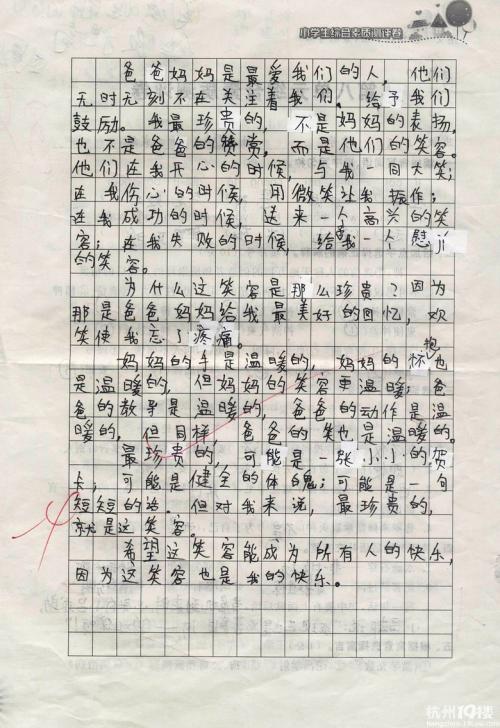 小学生综合素质测评卷
爸爸妈妈是最爱我们的人。他们
无时无刻不在关注着我们。给予我们
鼓励。我最珍贵的，不是妈妈的表扬，
也不是爸爸的赞赏，而是他们的笑容。
他们在我开心的时候，与我一同大笑；
在我伤心的时候，用微笑让我振作；
在我成功的时候，送来一个高兴的笑
容；在我失败的时候，给我一个慰
的笑容。
为什么这笑容是那么珍贵？因为
那是爸爸妈妈给我最美好的回忆，欢
笑使我忘了疼痛。
妈妈的手是温暖的，妈妈的怀抱也
是温暖的，但妈妈的笑容更温暖；爸
爸的教导是温暖的，爸爸的动作是温
暖的。但同样，爸爸的笑也是温暖的。
最珍贵的，可能是一张小小的贺
卡，可能是健全的体魄；可能是一句
短短的话。但对我来说，最珍贵的，
就是这笑容。
希望这笑容能成为所有人的快乐，
因为这笑容也是我的快乐。
杭州19楼